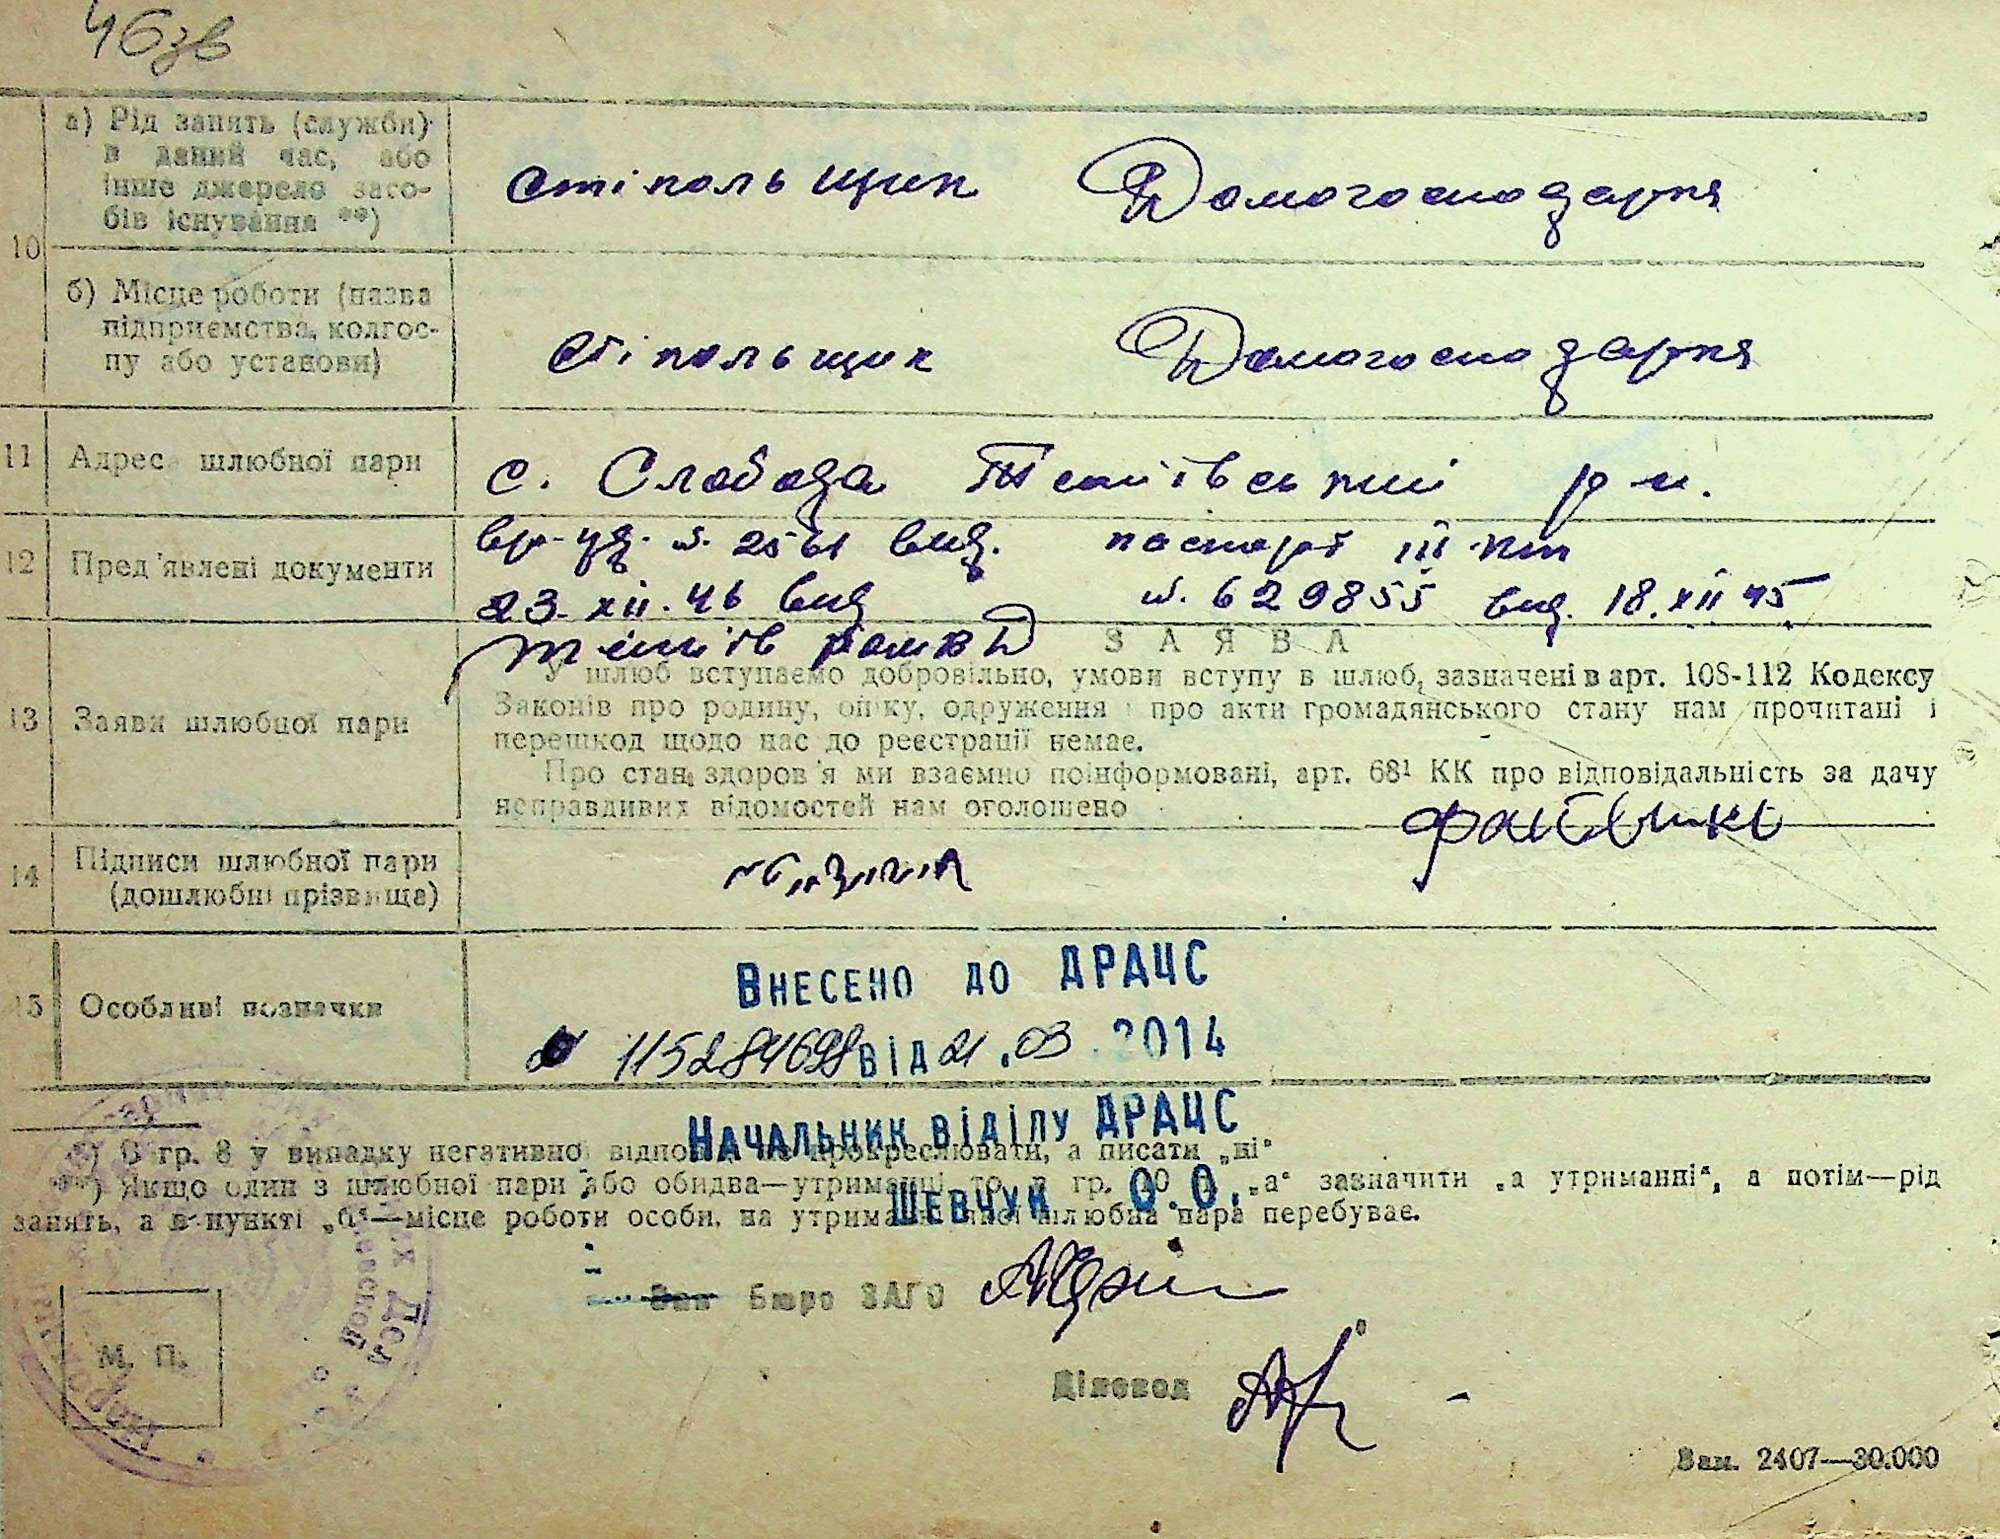 46зв
10
а) Рід занять (служби)
в даний час, або
інше джерело засо-
бів існування **)
стіпольщик Домогосподарка
б) Місце роботи (назва
підприємства, колгос-
пу або установи)
стіпольщик Домогосподарка
11 Адрес шлюбної пари
с. Слобода р-н.
12 Пред'явлені документи
вр. уд. н. 2561 вид. паспорт III
23.XII.46 вид н. 629855 вид. 18.XII 45
ЗАЯВА
13 Заяви шлюбної пари
У шлюб вступаємо добровільно, умови вступу в шлюб, зазначені в арт. 108-112 Кодексу
Законів про родину, опіку, одруження і про акти громадянського стану нам прочитані і
перешкод щодо нас до реєстрації немає.
Про стан здоров'я ми взаємно поінформовані, арт. 68¹ КК про відповідальність за дачу
неправдивих відомостей нам оголошено
14 Підписи шлюбної пари
(дошлюбні прізвища)
15 Особливі позначки
Внесено до ДРАЦС
115284698 від 21.03.2014
Начальник відділу ДРАЦС
Шевчук О.О.
*) В гр. 8 у випадку негативної прокреслювати, а писати „ні“
**) Якщо один з шлюбної пари або обидва—утриманці, то в гр. 10 п. „а“ зазначити „а утриманні“, а потім—рід
занять, а в пункті „б“—місце роботи особи, на шлюбна пара перебуває.
Зав Бюро ЗАГС
М. П.
Діловод
Зам. 2407—30.000